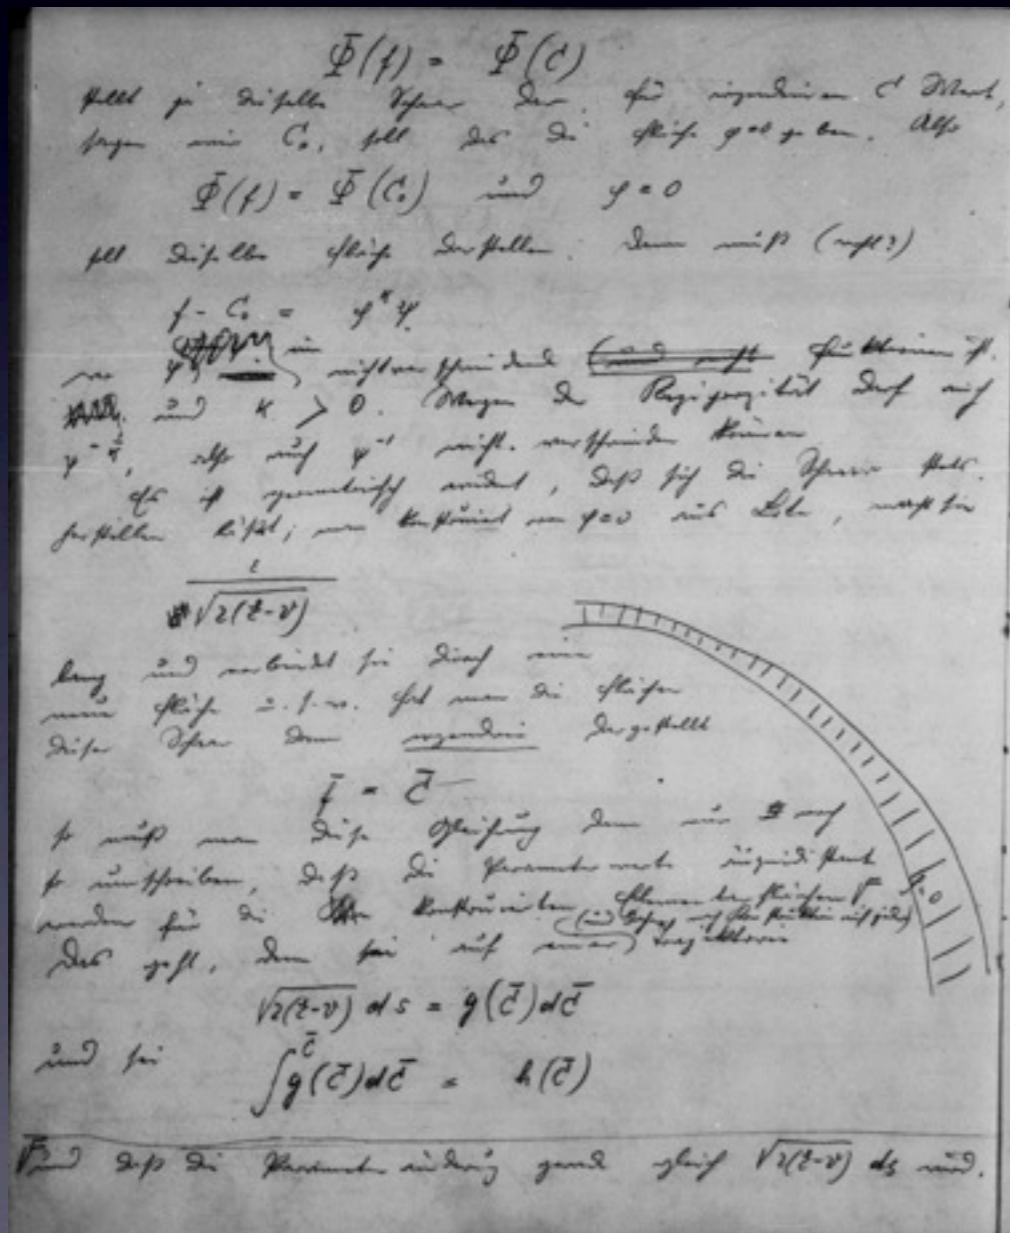 Φ(f) = Φ(C)
stellt ja dieselbe Schaar dar. für irgendeinen C Wert,
sagen wir C₀, soll das die Fläche φ=0 geben. Also
Φ(f) = Φ(C₀) und φ = 0
soll dieselbe Fläche darstellen. Dann muß (recht?)
f - C₀ = φ^κ ψ
wo ψ nicht verschwindend Funktionen ist.
und κ > 0. Wegen der Reziprozität darf auch
also auch ψ⁻¹ nicht verschwinden können
Es ist geometrisch evident, daß sich die Schaar stets
herstellen läßt; man konstruiert von φ=0 aus Lote, macht sie
ε / √2(E-V)
lang und verbindet sie durch eine
neue Fläche u.s.w. Hat man die Flächen
dieser Schaar dann irgendwie dargestellt
f̄ = C̄
so muß man diese Gleichung dann nur noch
so umschreiben, daß die Parameterwerte äquidistant
werden für die konstruierten Elementarflächen
φ=0
Das geht, denn sei auf einer Trajektorie
√2(E-V) ds = g(C̄)dC̄
und sei ∫^C̄ g(C̄)dC̄ = h(C̄)
und daß die Parameteränderung gerade gleich √2(E-V) ds wird.